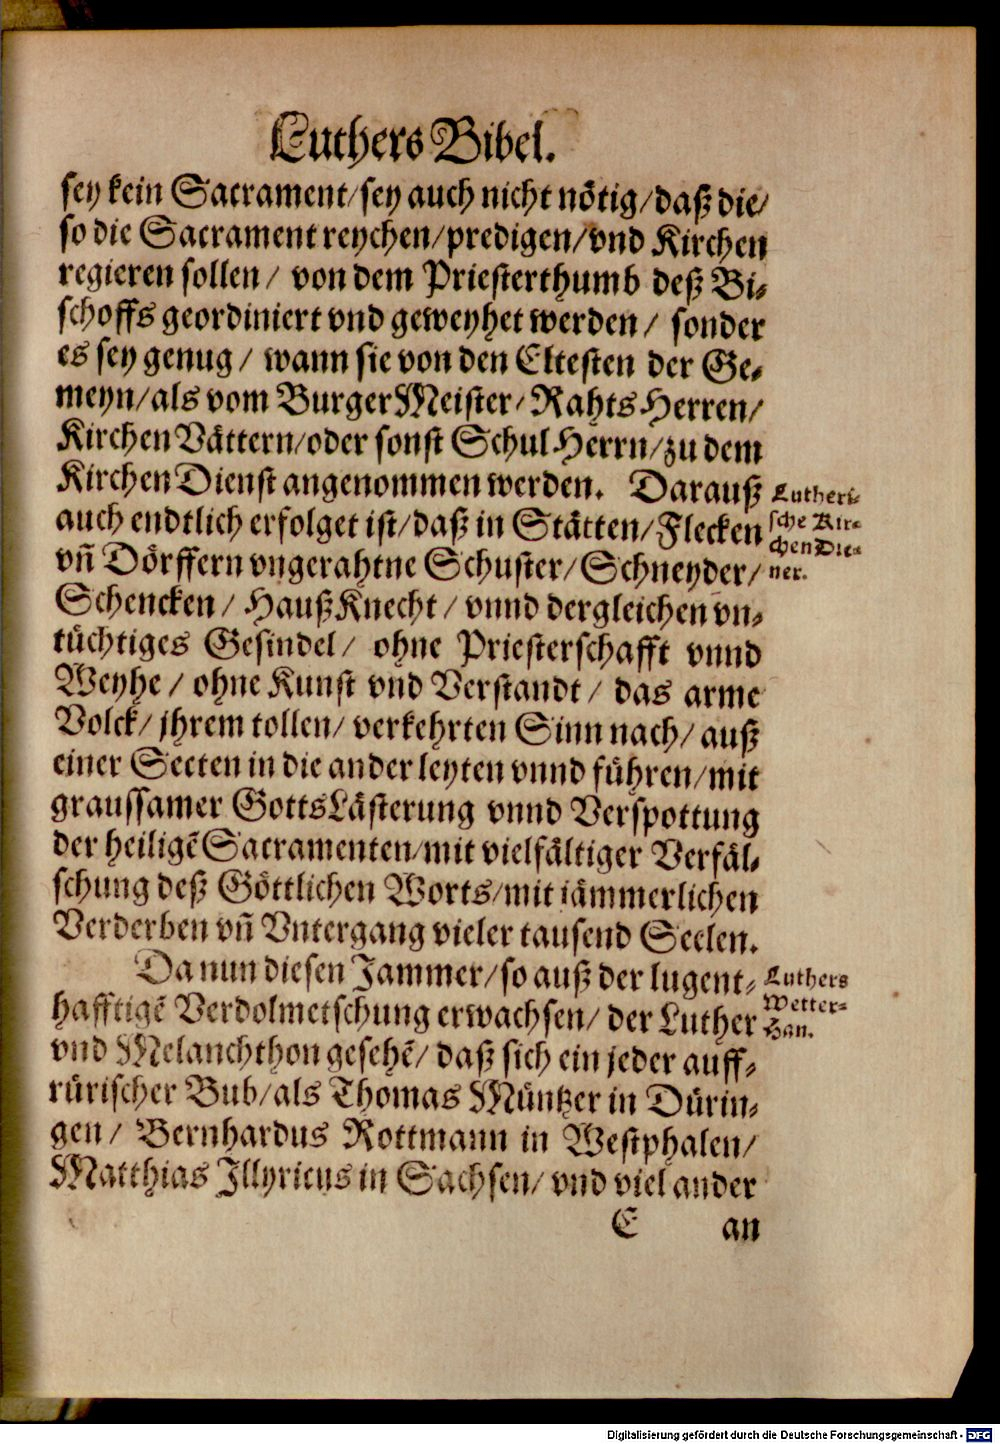 Luthers Bibel.
sey kein Sacrament/sey auch nicht nötig/daß die/
so die Sacrament reychen/predigen/vnd Kirchen
regieren sollen/ von dem Priesterthumb deß Bi-
schoffs geordiniert vnd geweyhet werden/ sonder
es sey genug/ wann sie von den Eltesten der Ge-
meyn/als vom BurgerMeister/RahtsHerren/
KirchenVättern/oder sonst SchulHerrn/zu dem
KirchenDienst angenommen werden. Darauß
auch endtlich erfolget ist/daß in Stätten/Flecken
vñ Dörffern vngerahtne Schuster/Schneyder/
Schencken/ HaußKnecht/ vnnd dergleichen vn-
tüchtiges Gesindel/ ohne Priesterschafft vnnd
Weyhe/ ohne Kunst vnd Verstandt/ das arme
Volck/ jhrem tollen/ verkehrten Sinn nach/ auß
einer Secten in die ander leyten vnnd führen/mit
graussamer GottsLästerung vnnd Verspottung
der heiligẽ Sacramenten/mit vielfältiger Verfäl-
schung deß Göttlichen Worts/mit iämmerlichen
Verderben vñ Vntergang vieler tausend Seelen.
Lutheri-
sche Kir-
chenDie-
ner.
Da nun diesen Jammer/so auß der lugent-
hafftigẽ Verdolmetschung erwachsen/ der Luther
vnd Melanchthon gesehẽ/ daß sich ein jeder auff-
rürischer Bub/als Thomas Müntzer in Dürin-
gen/ Bernhardus Rottmann in Westphalen/
Matthias Jllyricus in Sachsen/ vnd viel ander
Luthers
Wetter-
Han.
E an
Digitalisierung gefördert durch die Deutsche Forschungsgemeinschaft - DFG